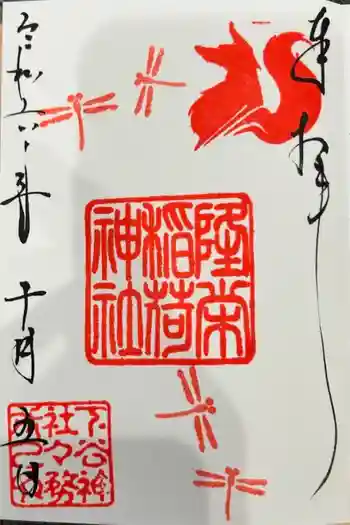 奉拝
隆栄
稲荷
神社
令和六年十月五日
下谷神
社々務
所之印